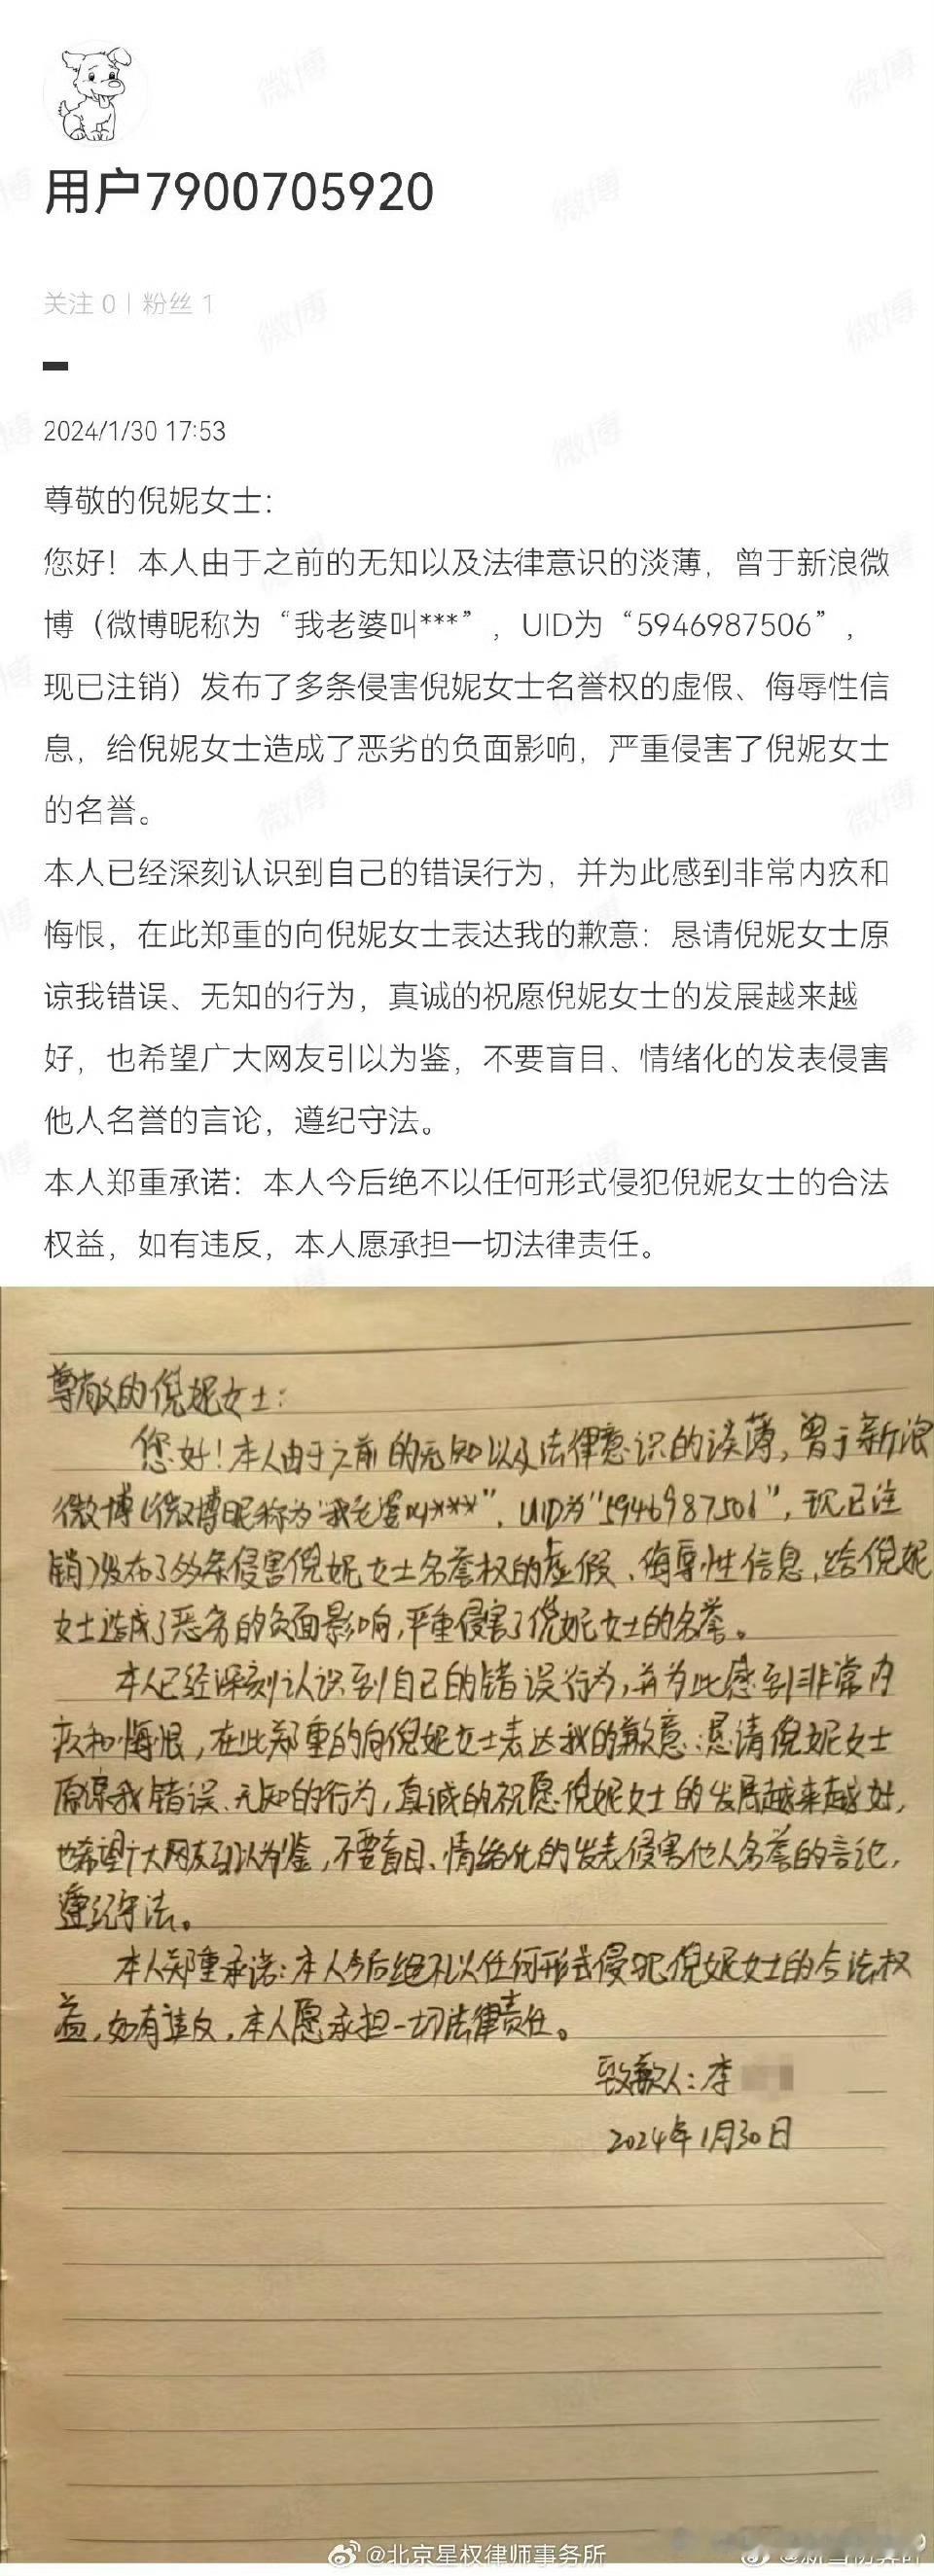 用户7900705920
关注 0 | 粉丝 1
2024/1/30 17:53
尊敬的倪妮女士：
您好！本人由于之前的无知以及法律意识的淡薄，曾于新浪微
博（微博昵称为“我老婆叫***”，UID为“5946987506”，
现已注销）发布了多条侵害倪妮女士名誉权的虚假、侮辱性信
息，给倪妮女士造成了恶劣的负面影响，严重侵害了倪妮女士
的名誉。
本人已经深刻认识到自己的错误行为，并为此感到非常内疚和
悔恨，在此郑重的向倪妮女士表达我的歉意：恳请倪妮女士原
谅我错误、无知的行为，真诚的祝愿倪妮女士的发展越来越
好，也希望广大网友引以为鉴，不要盲目、情绪化的发表侵害
他人名誉的言论，遵纪守法。
本人郑重承诺：本人今后绝不以任何形式侵犯倪妮女士的合法
权益，如有违反，本人愿承担一切法律责任。
尊敬的倪妮女士：
您好！本人由于之前的无知以及法律意识的淡薄，曾于新浪
微博（微博昵称为“我老婆叫***”，UID为“5946987506”，现已注
销）发布了多条侵害倪妮女士名誉权的虚假、侮辱性信息，给倪妮
女士造成了恶劣的负面影响，严重侵害了倪妮女士的名誉。
本人已经深刻认识到自己的错误行为，并为此感到非常内
疚和悔恨，在此郑重的向倪妮女士表达我的歉意：恳请倪妮女士
原谅我错误、无知的行为，真诚的祝愿倪妮女士的发展越来越好，
也希望广大网友引以为鉴，不要盲目、情绪化的发表侵害他人名誉的言论，
遵纪守法。
本人郑重承诺：本人今后绝不以任何形式侵犯倪妮女士的合法权
益，如有违反，本人愿承担一切法律责任。
致歉人：李
2024年1月30日
@北京星权律师事务所